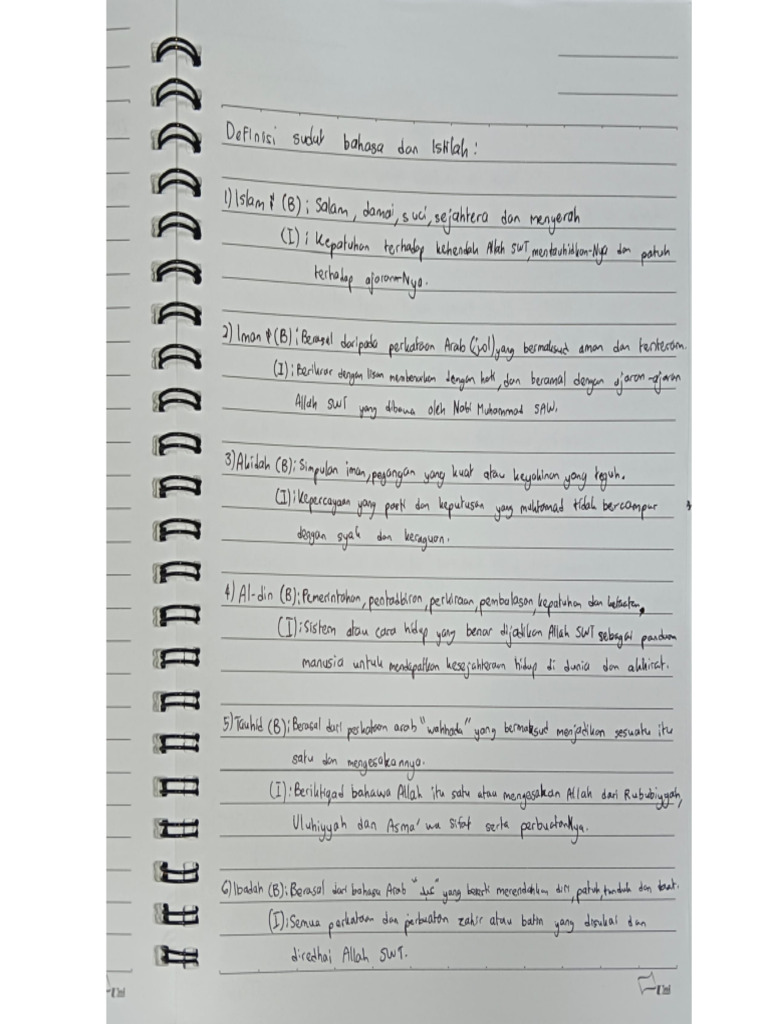 Definisi sudut bahasa dan Istilah:
1) Islam (B); Salam, damai, suci, sejahtera dan menyerah
(I); Kepatuhan terhadap kehendak Allah SWT, mentauhidkan-Nya dan patuh
terhadap ajaran-Nya.
2) Iman (B); Berasal daripada perkataan Arab yang bermaksud aman dan tenteram.
(I); Berikrar dengan lisan membenarkan dengan hati, dan beramal dengan ajaran-ajaran
Allah SWT yang dibawa oleh Nabi Muhammad SAW.
3) Akidah (B); Simpulan iman, pegangan yang kuat atau keyakinan yang teguh.
(I); Kepercayaan yang pasti dan keputusan yang muktamad tidak bercampur
dengan syak dan keraguan.
4) Al-din (B); Pemerintahan, pentadbiran, perkiraan, pembalasan, kepatuhan dan
(I); Sistem atau cara hidup yang benar dijadikan Allah SWT sebagai panduan
manusia untuk mendapatkan kesejahteraan hidup di dunia dan akhirat.
5) Tauhid (B); Berasal dari perkataan arab "wahhada" yang bermaksud menjadikan sesuatu itu
satu dan mengesakannya.
(I): Beriktiqad bahawa Allah itu satu atau mengesakan Allah dari Rububiyyah,
Uluhiyyah dan Asma' wa sifat serta perbuatanNya.
6) Ibadah (B); Berasal dari bahasa Arab yang bererti merendahkan diri, patuh, tunduk dan taat.
(I); Semua perkataan dan perbuatan zahir atau batin yang disukai dan
diredhai Allah SWT.